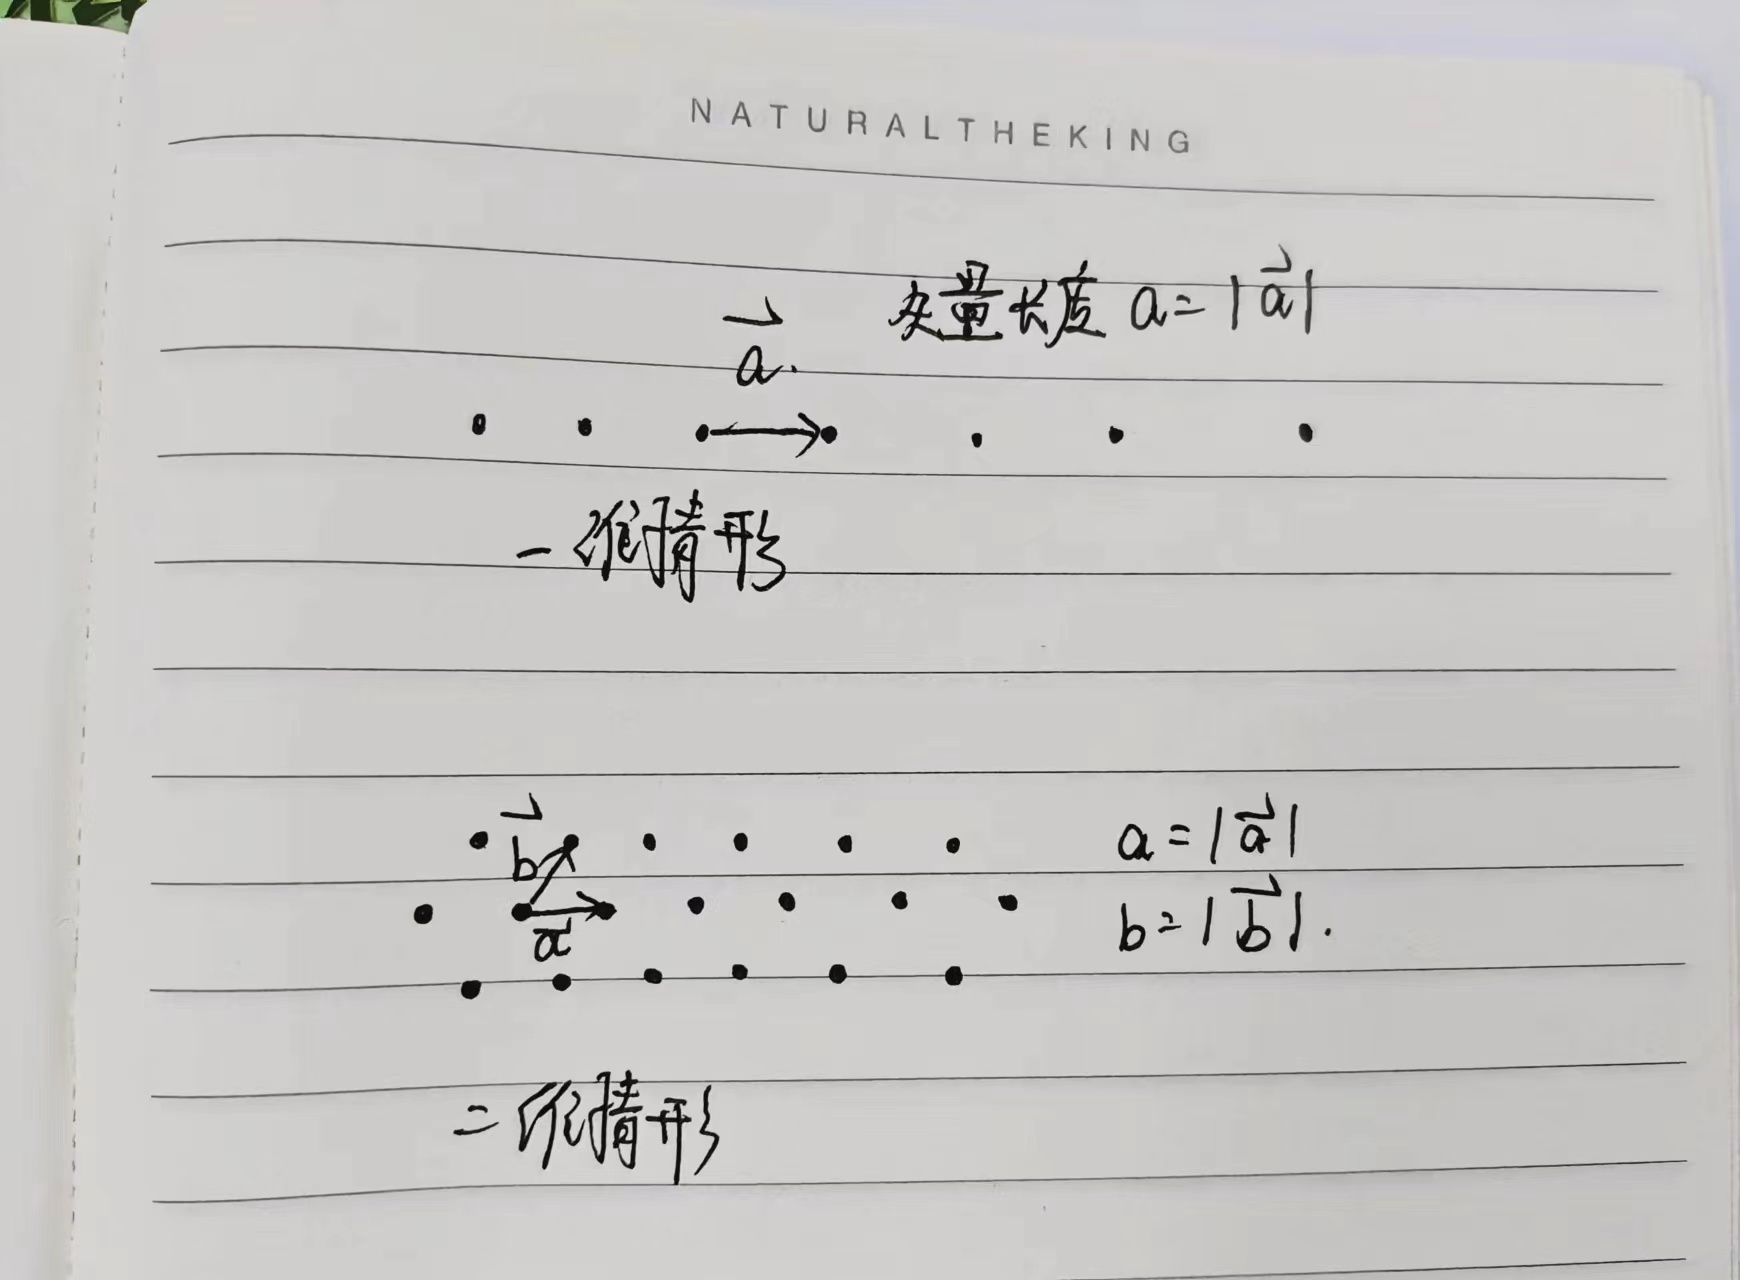 NATURALTHEKING
矢量长度 a = |a⃗|
a⃗.
一维情形
b⃗
a = |a⃗|
a⃗
b = |b⃗|.
二维情形